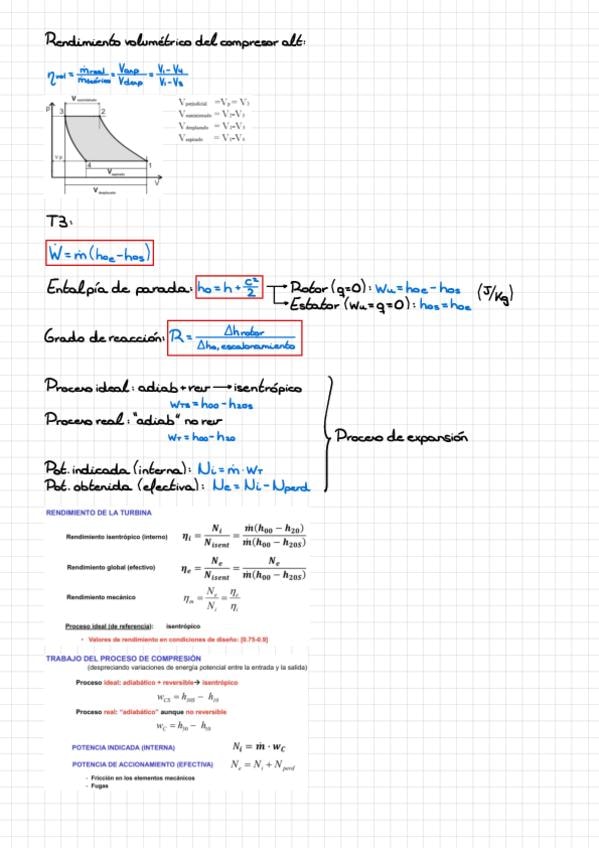 Rendimiento volumétrico del compresor alt:
ηvol = ṁreal/ṁteórico = Vasp/Vdesp = V1-V4/V1-V3
V suministrado
P
3
2
V perjudicial =Vp= V3
V suministrado = V2-V3
V desplazado = V1-V3
V aspirado = V1-V4
Vp
4
1
V aspirado
V
V desplazado
T3:
Ẇ = ṁ(h0e - h0s)
Entalpía de parada: h0 = h + c²/2 → Rotor (q=0): Wu = h0e - h0s (J/kg)
→ Estator (Wu=q=0): h0s = h0e
Grado de reacción: R = Δh rotor / Δh0, escalonamiento
Proceso ideal: adiab + rev → isentrópico
WTS = h00 - h20S
Proceso real: "adiab" no rev
WT = h00 - h20
Proceso de expansión
Pot. indicada (interna): Ni = ṁ · WT
Pot. obtenida (efectiva): Ne = Ni - Nperd
RENDIMIENTO DE LA TURBINA
Rendimiento isentrópico (interno) ηi = Ni/Nisent = ṁ(h00 − h20)/ṁ(h00 − h20S)
Rendimiento global (efectivo) ηe = Ne/Nisent = Ne/ṁ(h00 − h20S)
Rendimiento mecánico ηm = Ne/Ni = ηe/ηi
Proceso ideal (de referencia): isentrópico
- Valores de rendimiento en condiciones de diseño: [0.75-0.9]
TRABAJO DEL PROCESO DE COMPRESIÓN
(despreciando variaciones de energía potencial entre la entrada y la salida)
Proceso ideal: adiabático + reversible→ isentrópico
wCS = h30S − h10
Proceso real: "adiabático" aunque no reversible
wC = h30 − h10
POTENCIA INDICADA (INTERNA) Ni = ṁ · wC
POTENCIA DE ACCIONAMIENTO (EFECTIVA) Ne = Ni + Nperd
- Fricción en los elementos mecánicos
- Fugas